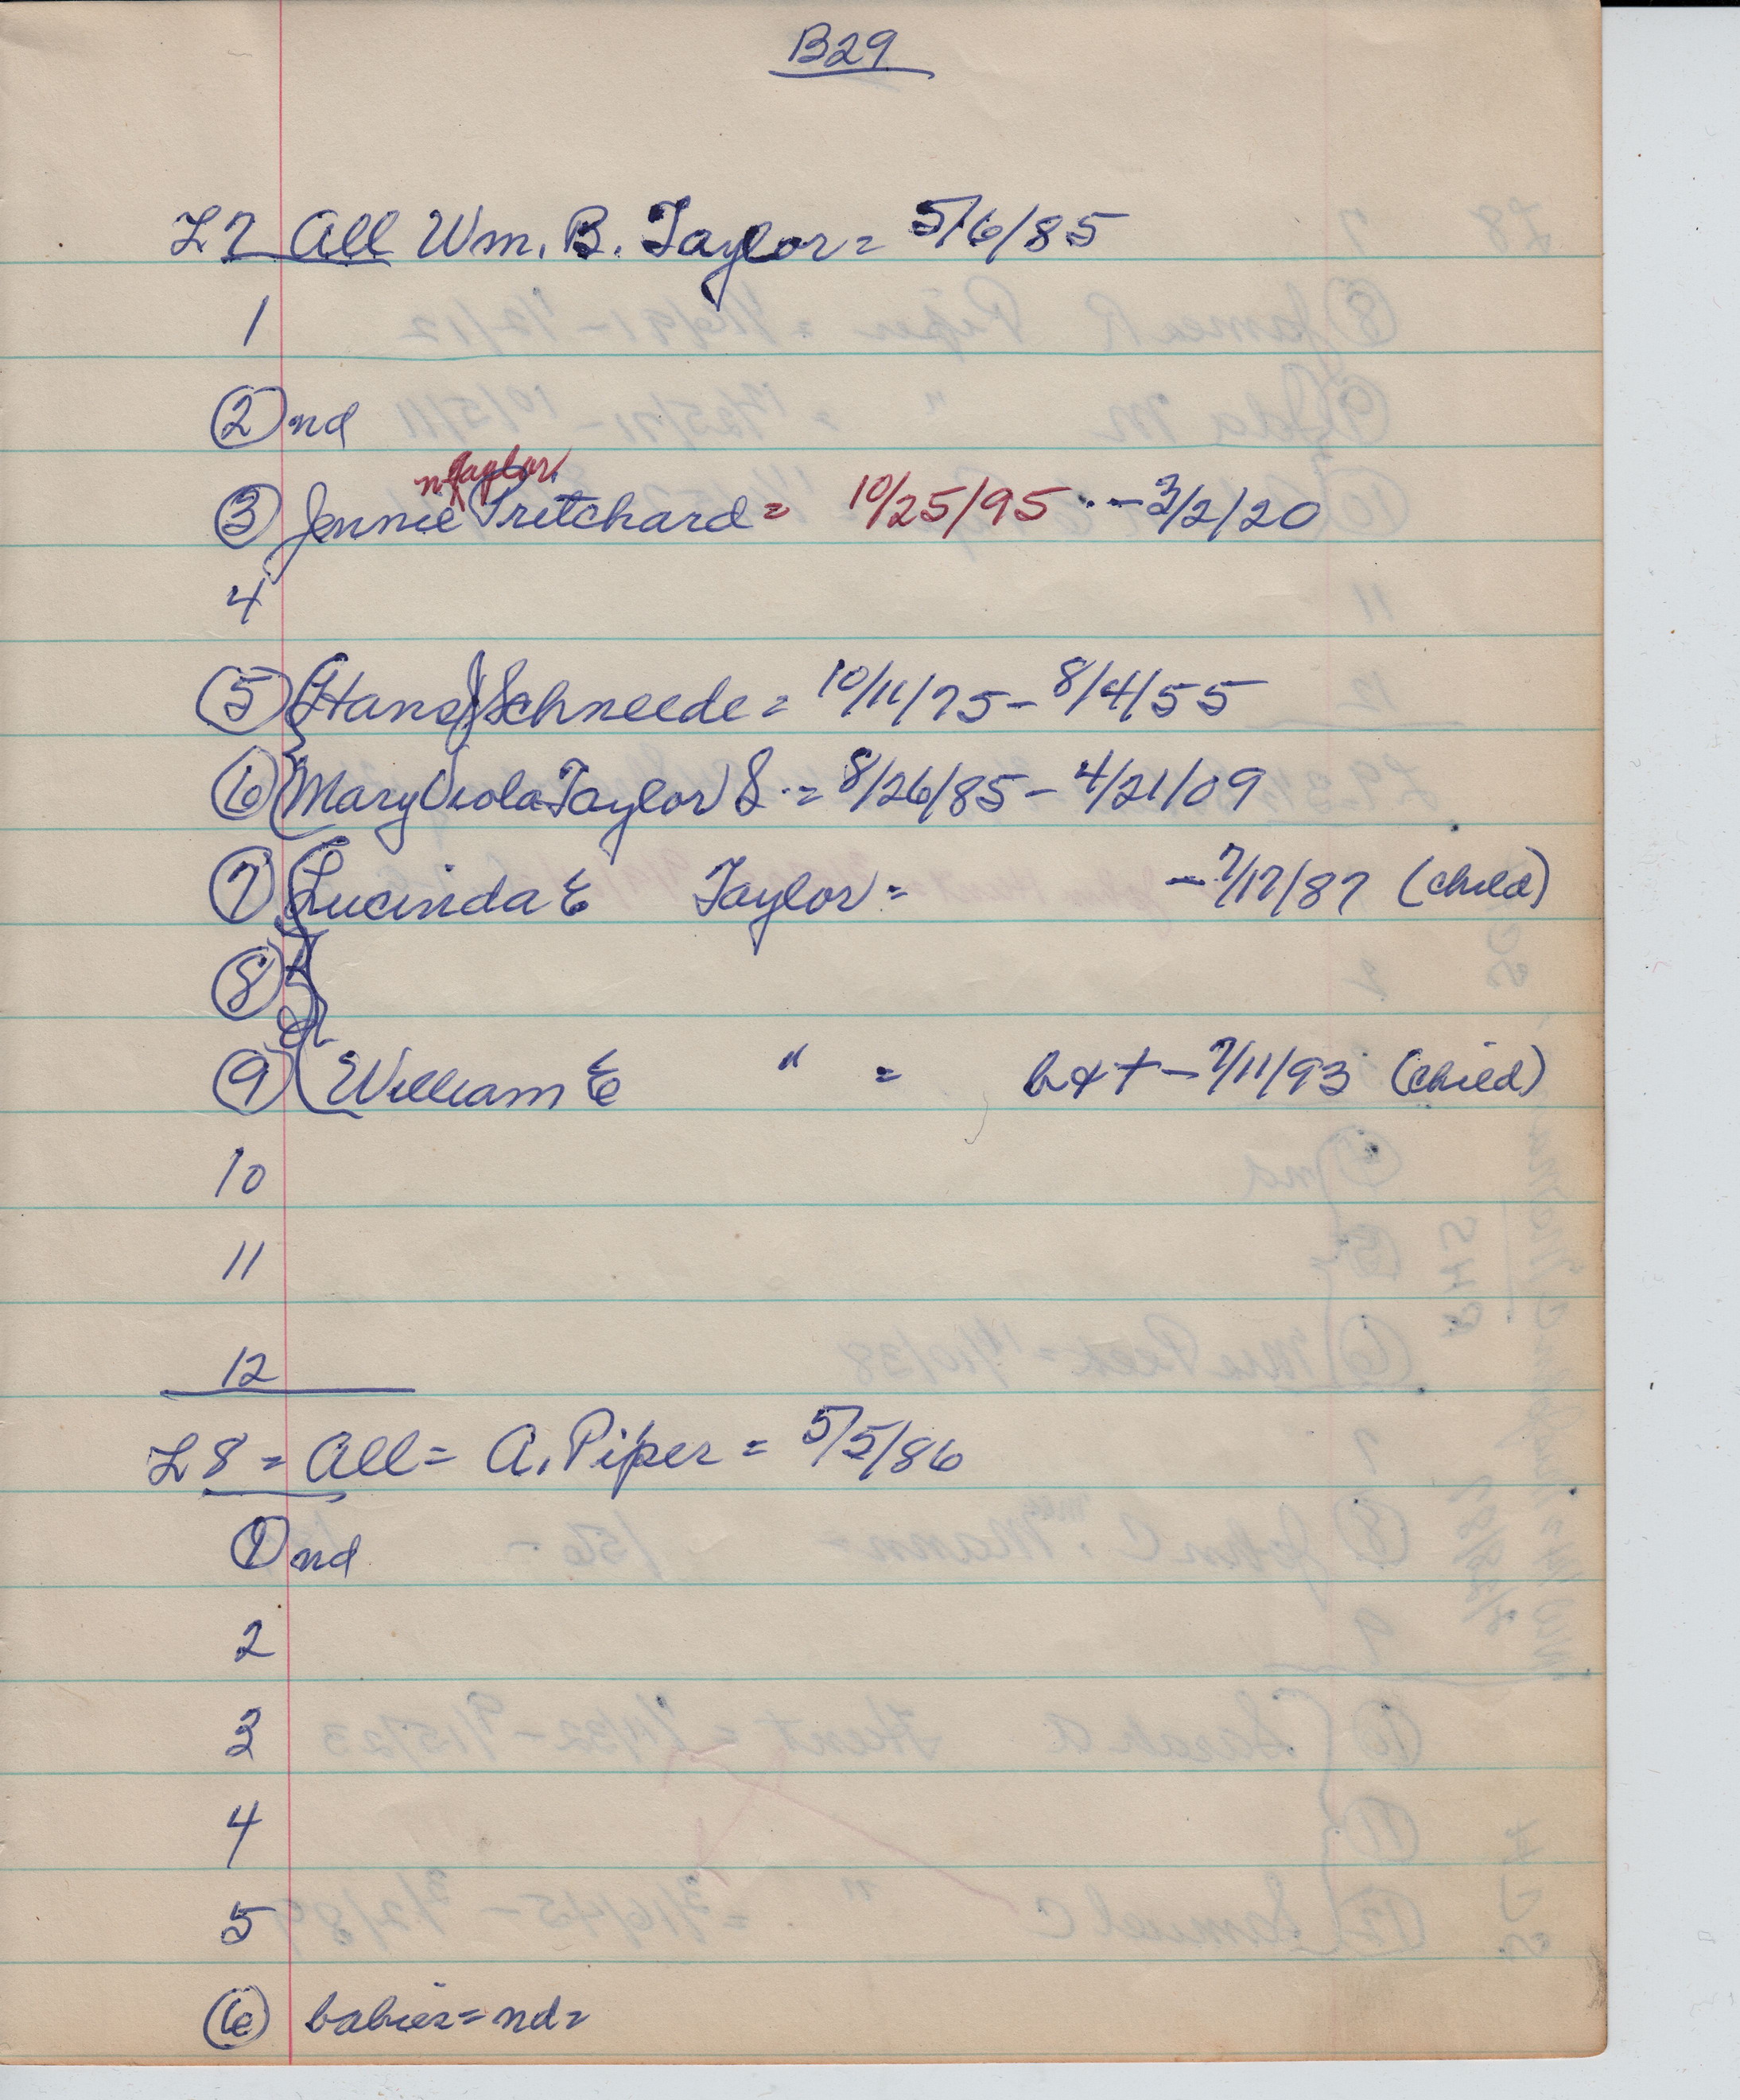 B29
L7 All Wm. B. Taylor = 5/6/85
1
2 nd
n Taylor
3 Jennie Pritchard = 10/25/95 - 3/2/20
4
5 Hans J Schneede = 10/11/75 - 8/4/55
6 Mary Viola Taylor S. = 8/26/85 - 4/21/09
7 Lucinda E Taylor = - 7/17/87 (child)
8
9 William E " = b & + - 7/11/93 (child)
10
11
12
L8 = All = A. Piper = 5/5/86
1 nd
2
3
4
5
6 babies = nd =